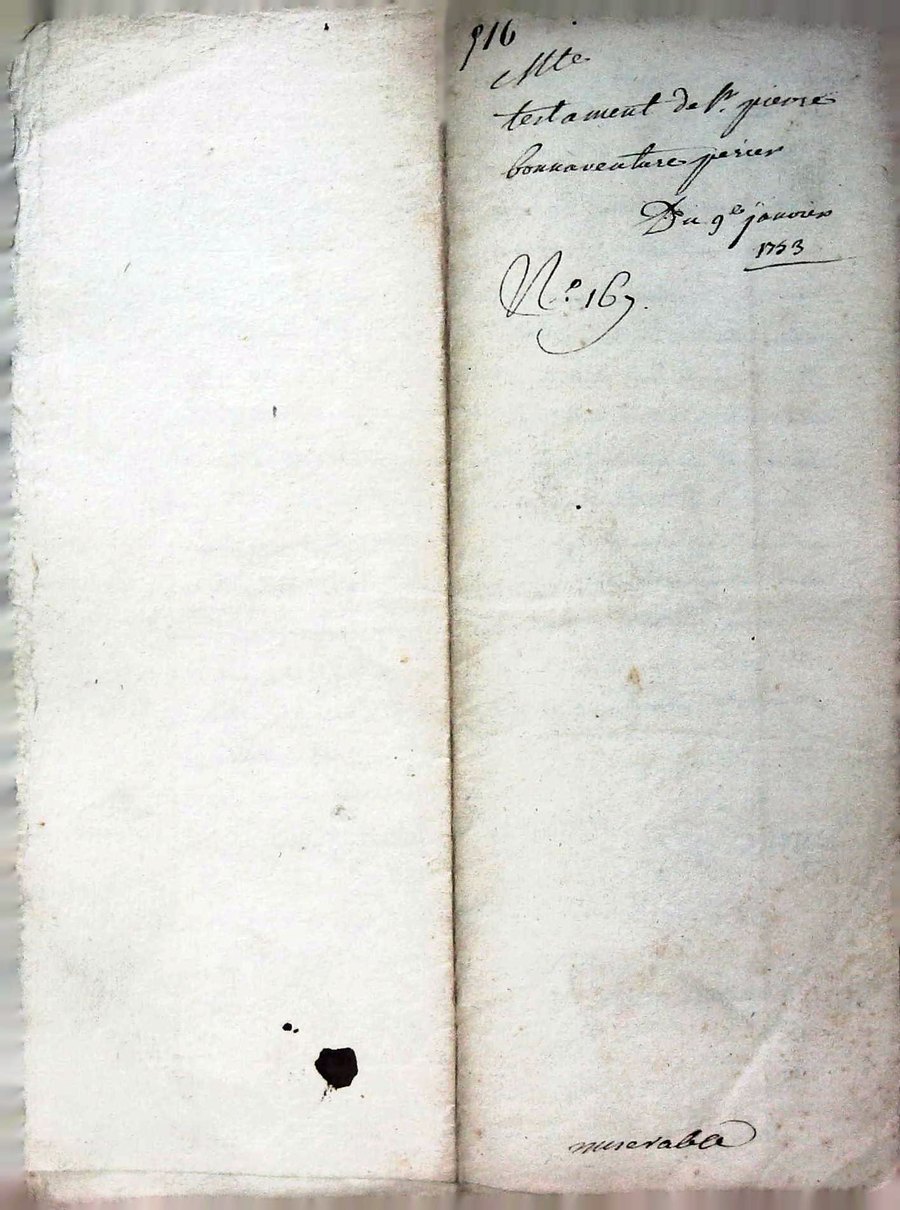 916
testament de Sr. pierre
bonnaventure perier
Du 9e janvier
1753
No. 167.
miserable